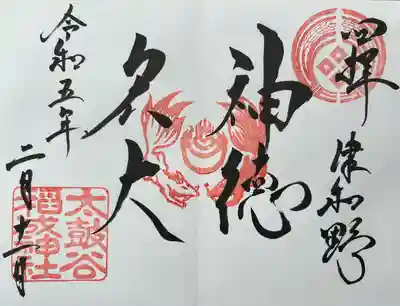 拝
津和野
神徳
大
令和五年
二月十一日
太鼓谷
稲成神社